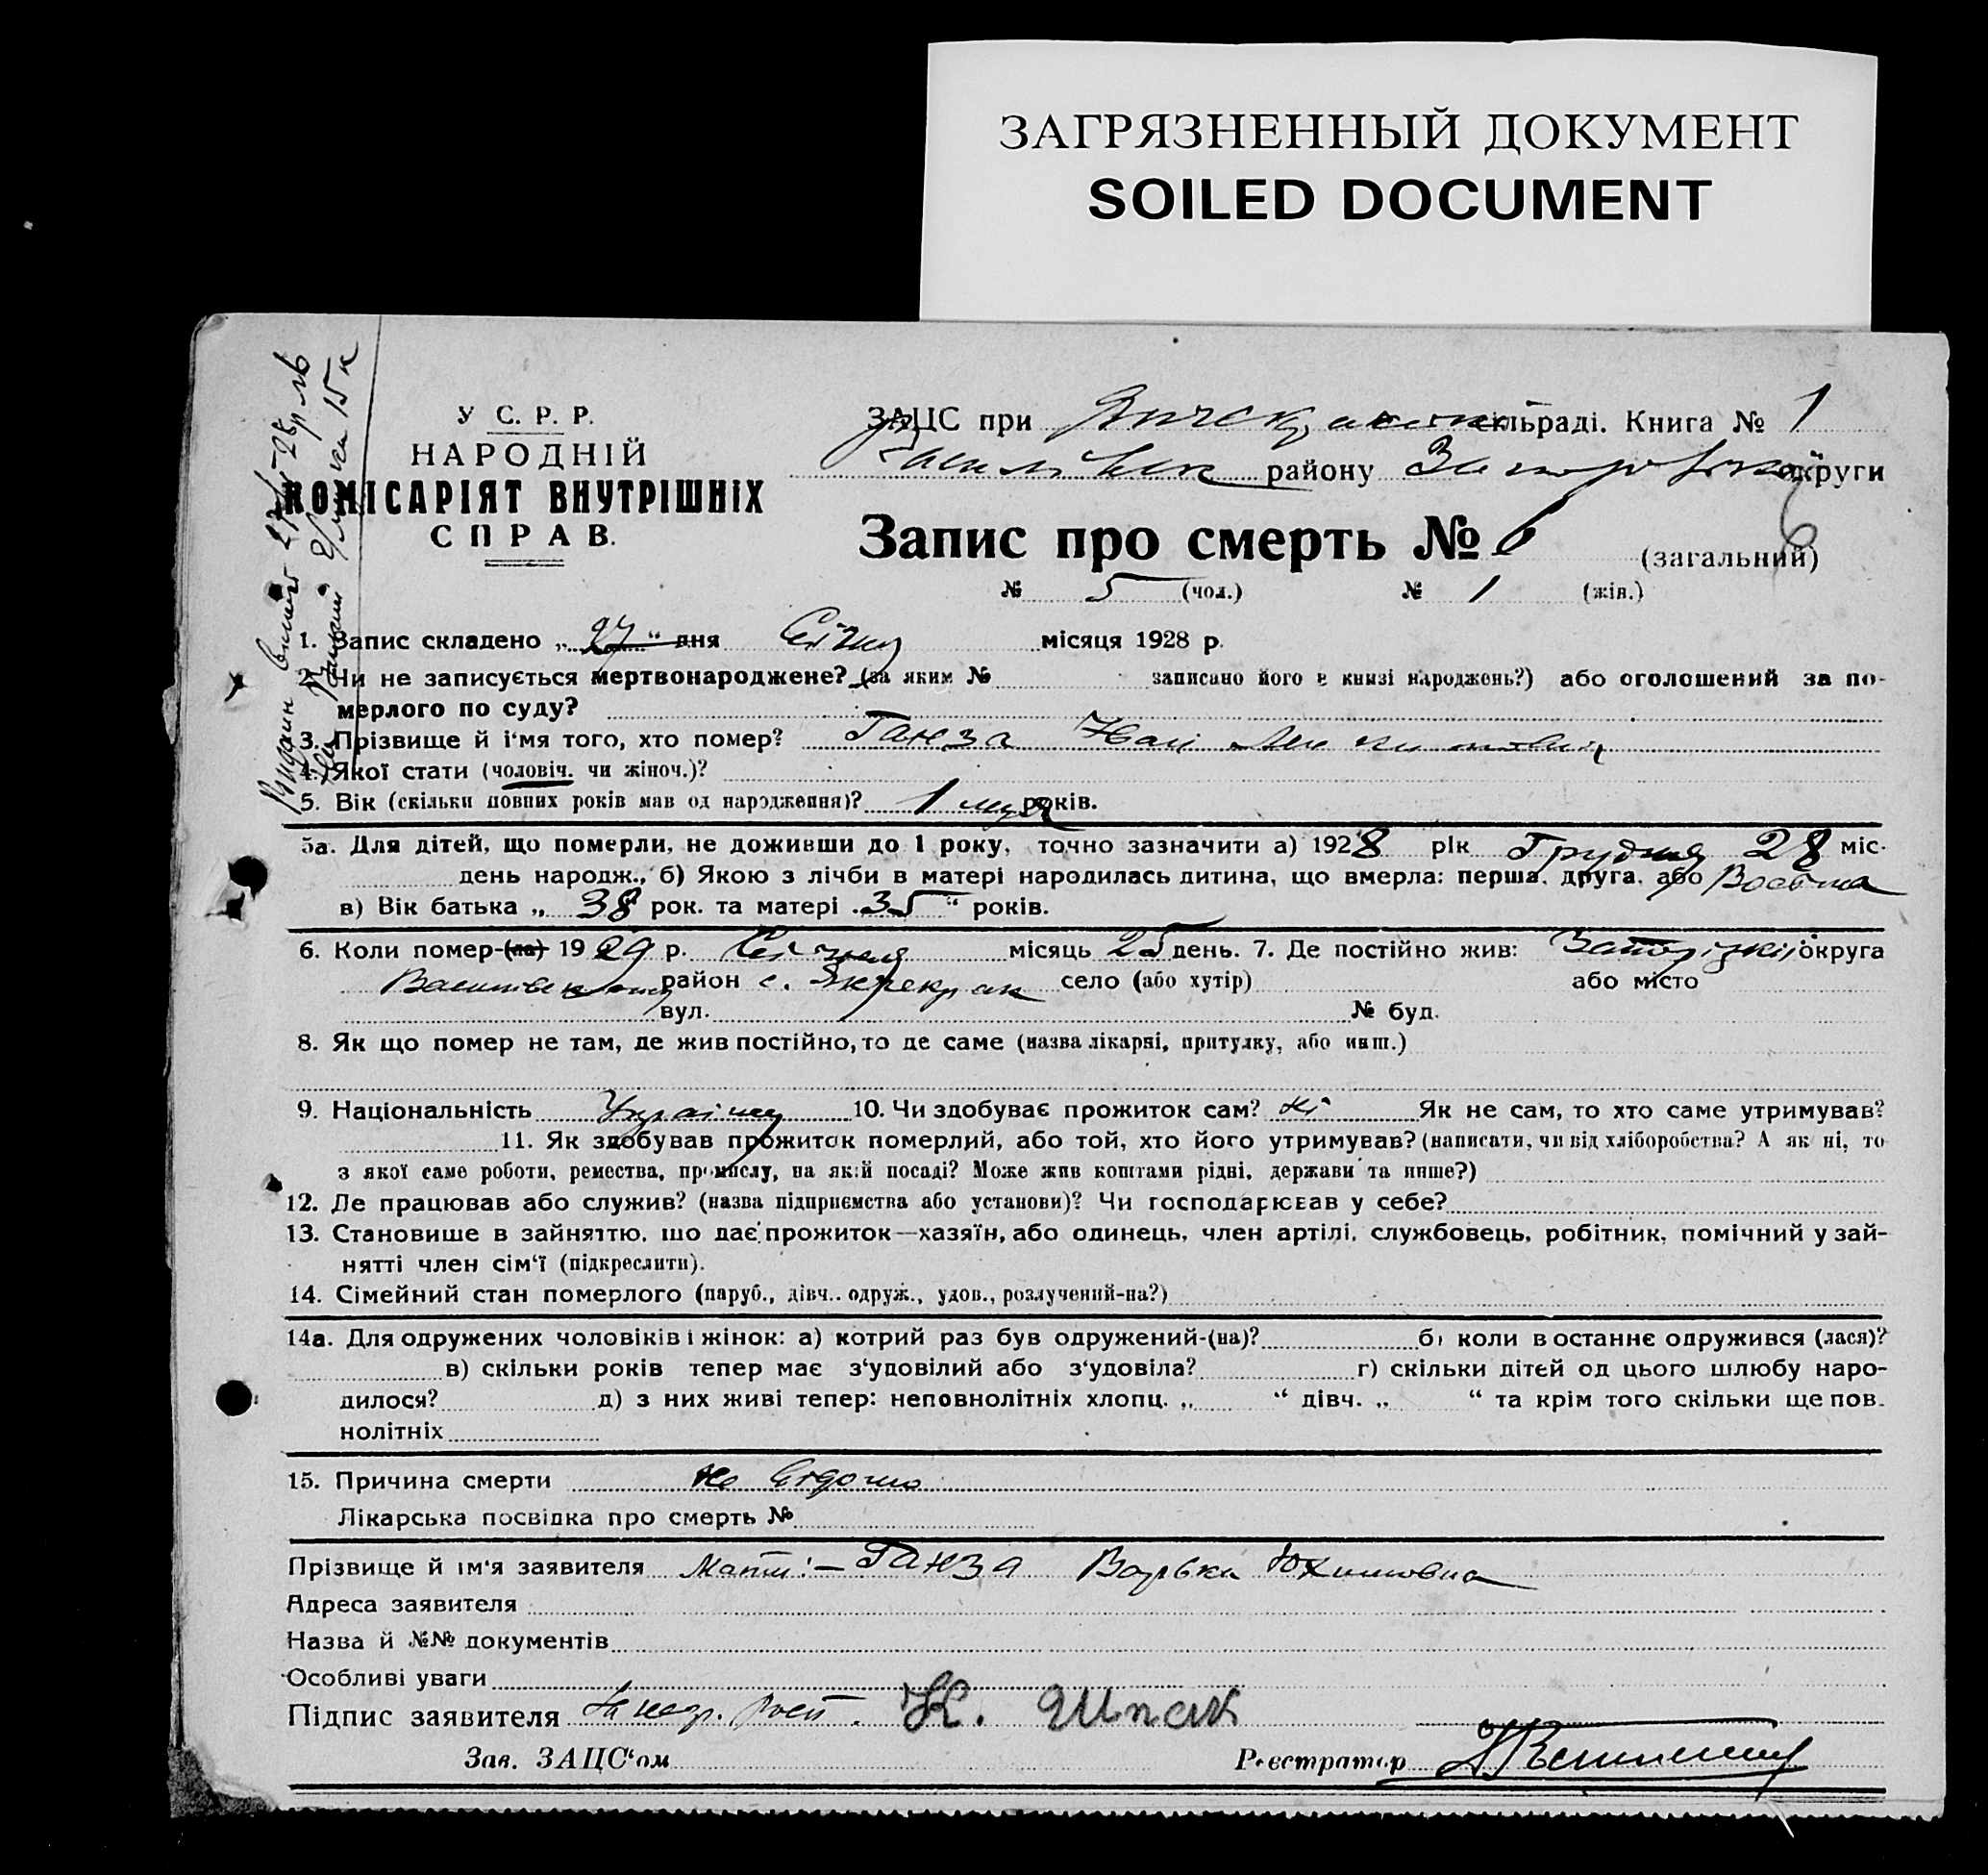 ЗАГРЯЗНЕННЫЙ ДОКУМЕНТ
SOILED DOCUMENT
У С. Р. Р.
НАРОДНІЙ
КОМІСАРІЯТ ВНУТРІШНІХ
СПРАВ.
ЗАЦС при сільраді. Книга № 1
району округи
Запис про смерть № 6 (загальний) 6
№ 5 (чол.) № 1 (жін.)
1. Запис складено „ 27 “ дня Січня місяця 1928 р.
2. Чи не записується мертвонароджене? (за яким № записано його в книзі народжень?) або оголошений за по-
мерлого по суду?
3. Прізвище й і'мя того, хто помер? Ганза
4. Якої стати (чоловіч. чи жіноч.)?
5. Вік (скільки повних років мав од народження)? 1 років.
5а. Для дітей, що померли, не доживши до 1 року, точно зазначити а) 1928 рік Грудня 28 міс.
день народж., б) Якою з лічби в матері народилась дитина, що вмерла: перша, друга, або
в) Вік батька „ 38 рок. та матері „ 35 “ років.
6. Коли помер-(ла) 1929 р. Січня місяць 25 день. 7. Де постійно жив: Запорізькій округа
район с. Янчекрак село (або хутір) або місто
вул. № буд.
8. Як що помер не там, де жив постійно, то де саме (назва лікарні, притулку, або инш.)
9. Національність 10. Чи здобуває прожиток сам? ні Як не сам, то хто саме утримував?
11. Як здобував прожиток померлий, або той, хто його утримував? (написати, чи від хліборобства? А як ні, то
з якої саме роботи, ремества, промислу, на якій посаді? Може жив коштами рідні, держави та инше?)
12. Де працював або служив? (назва підприємства або установи)? Чи господарював у себе?
13. Становище в зайняттю, що дає прожиток—хазяїн, або одинець, член артілі, службовець, робітник, помічний у зай-
нятті член сім‘ї (підкреслити).
14. Сімейний стан померлого (паруб., дівч.. одруж., удов., розлучений-на?)
14а. Для одружених чоловіків і жінок: а) котрий раз був одружений-(на)? б) коли в останнє одружився (лася)?
в) скільки років тепер має з‘удовілий або з‘удовіла? г) скільки дітей од цього шлюбу наро-
дилося? д) з них живі тепер: неповнолітніх хлопц. „ “ дівч. „ “ та крім того скільки ще пов-
нолітніх
15. Причина смерти не відомо
Лікарська посвідка про смерть №
Прізвище й ім‘я заявителя Мати:— Ганза Варька Юхимовна
Адреса заявителя
Назва й №№ документів
Особливі уваги
Підпис заявителя За негр. росп. К. Шпак
Зав. ЗАЦС‘ом Реєстратор